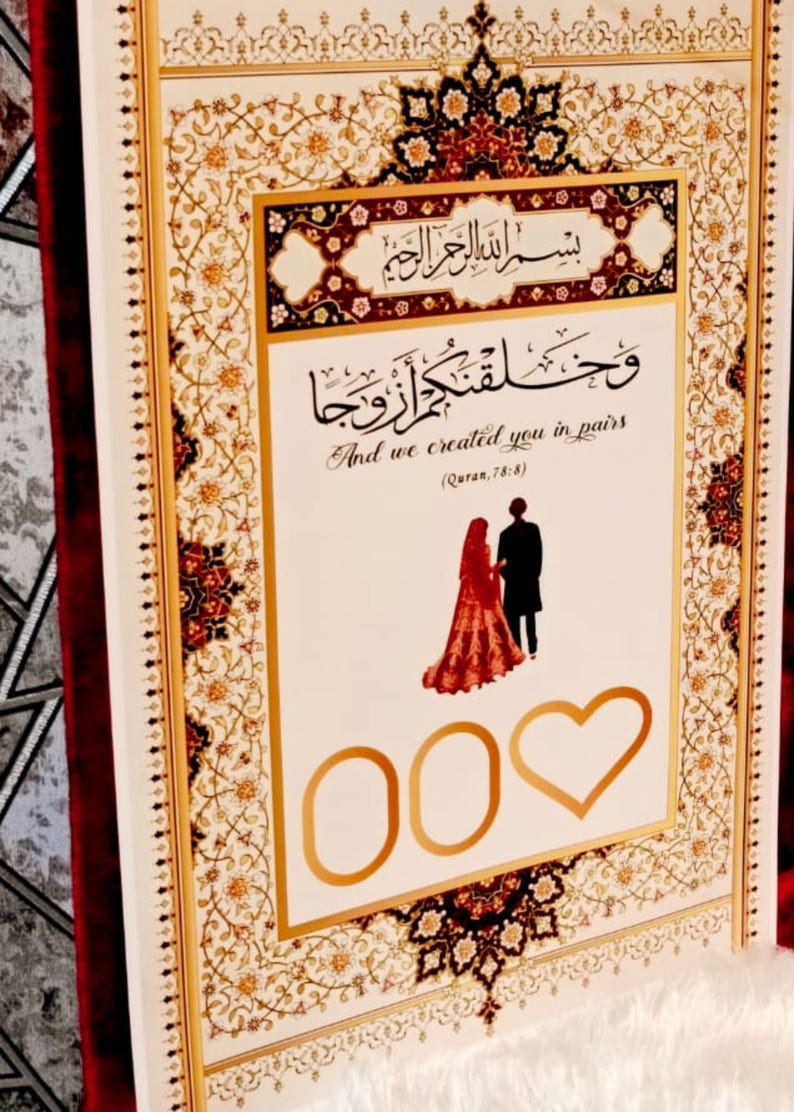 بسم الله الرحمن الرحيم
وَخَلَقْنَكُمْ أَزْوَجًا
And we created you in pairs
(Quran,78:8)